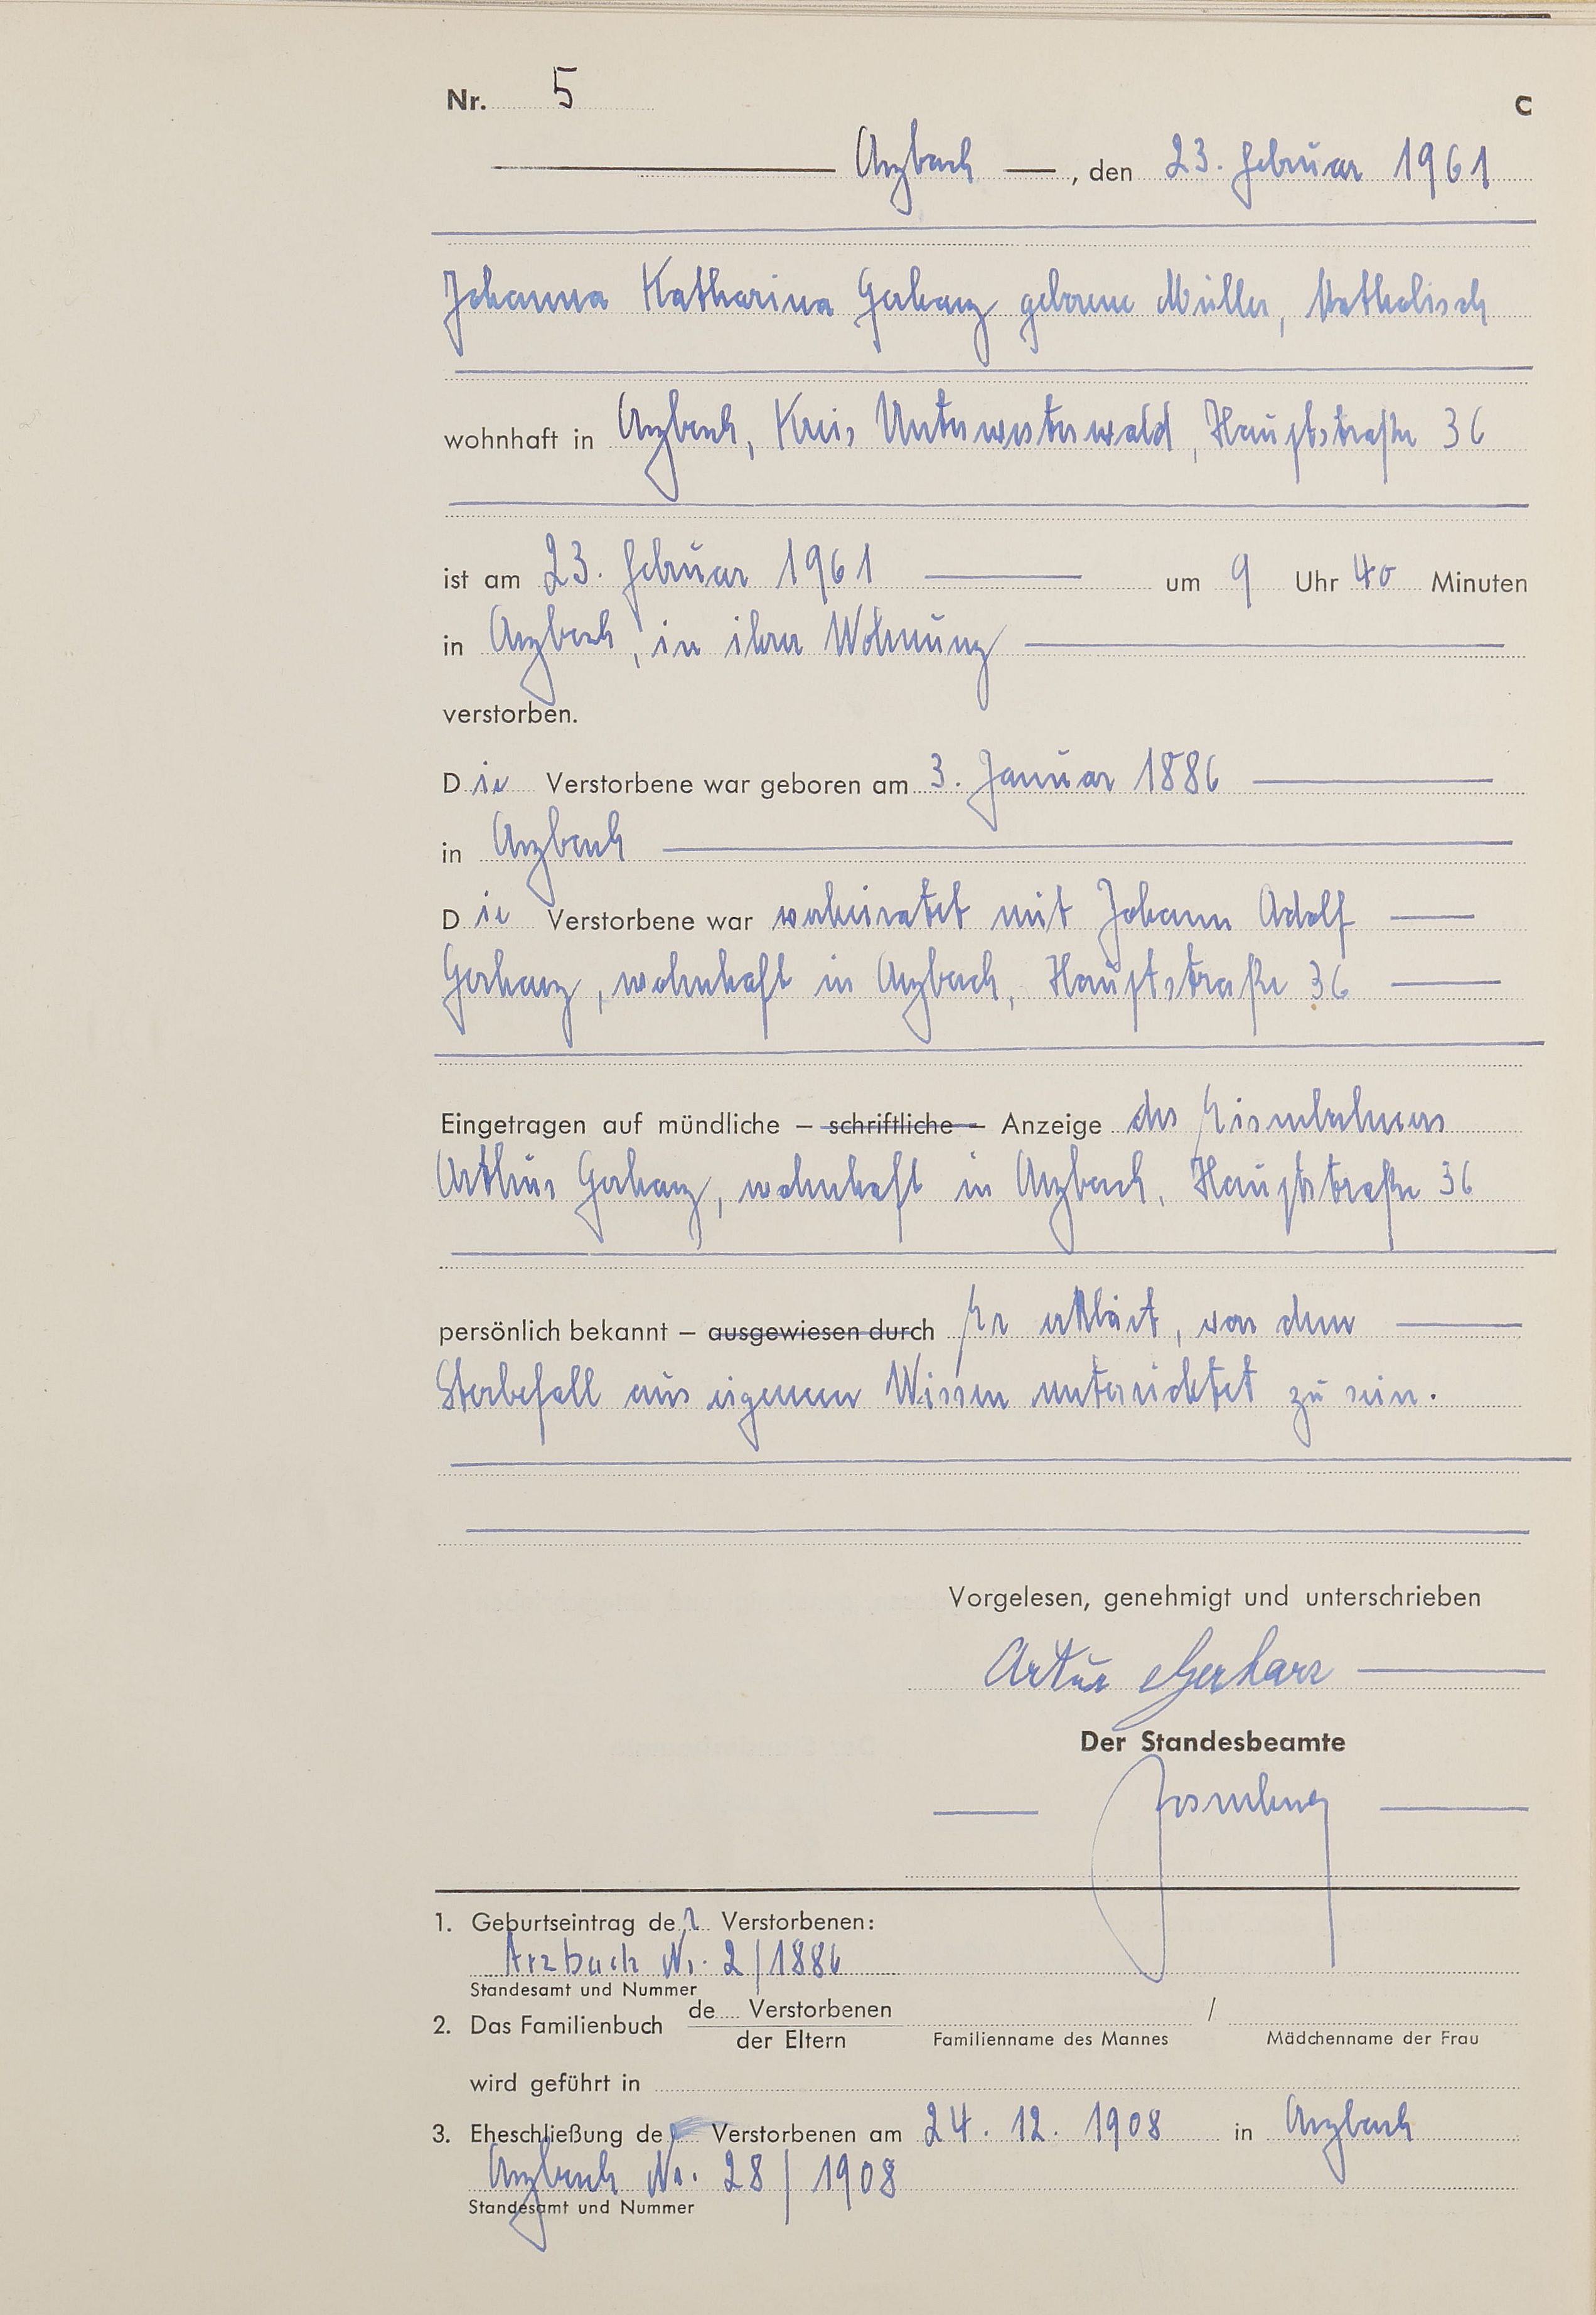 Nr. 5 C
Arzbach, den 23. Februar 1961
Johanna Katharina Gerharz geborene Müller, katholisch
wohnhaft in Arzbach, Kreis Unterwesterwald, Hauptstraße 36
ist am 23. Februar 1961 um 9 Uhr 40 Minuten
in Arzbach, in ihrer Wohnung
verstorben.
Die Verstorbene war geboren am 3. Januar 1886
in Arzbach
Die Verstorbene war verheiratet mit Johann Adolf
Gerharz, wohnhaft in Arzbach, Hauptstraße 36
Eingetragen auf mündliche – schriftliche – Anzeige des Eisenbahners
Arthur Gerharz, wohnhaft in Arzbach, Hauptstraße 36
persönlich bekannt – ausgewiesen durch Er erklärt, von dem
Sterbefall aus eigenem Wissen unterrichtet zu sein.
Vorgelesen, genehmigt und unterschrieben
Artur Gerharz
Der Standesbeamte
1. Geburtseintrag der Verstorbenen:
Arzbach Nr. 2/1886
Standesamt und Nummer
2. Das Familienbuch de Verstorbenen /
der Eltern Familienname des Mannes Mädchenname der Frau
wird geführt in
3. Eheschließung der Verstorbenen am 24. 12. 1908 in Arzbach
Arzbach Nr. 28/1908
Standesamt und Nummer